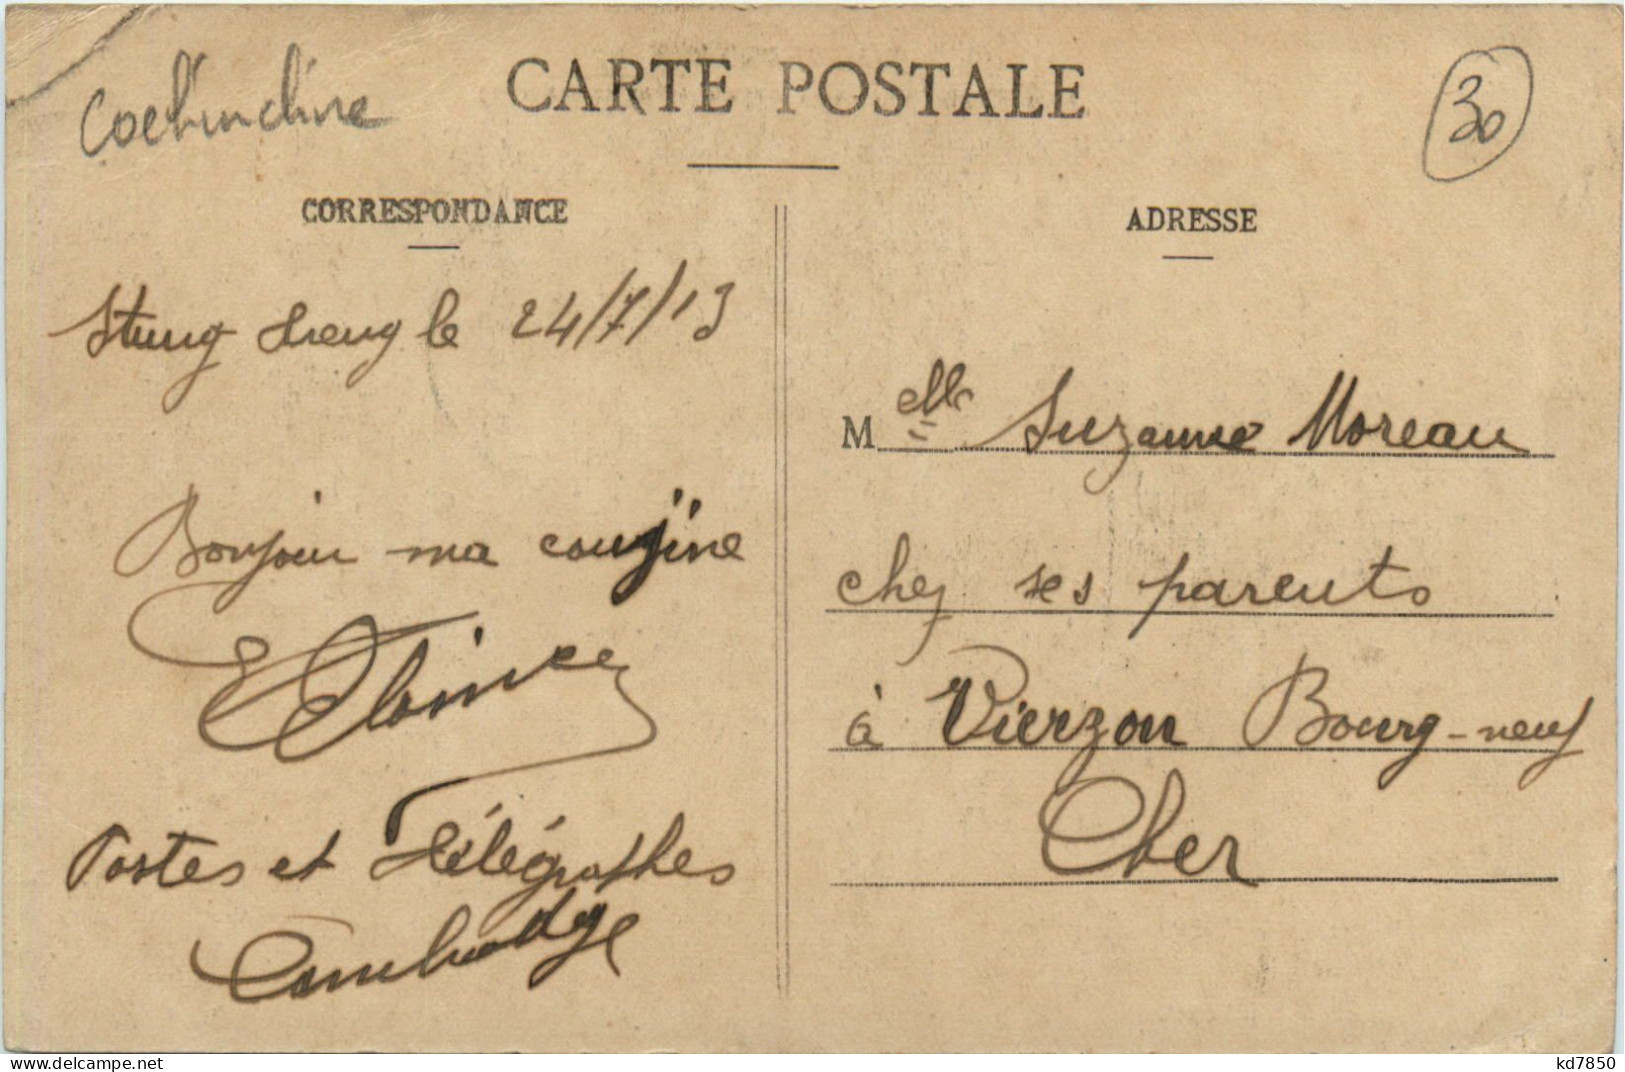 Cochinchine
CARTE POSTALE
30
CORRESPONDANCE
Stung Treng le 24/7/13
Bonjour ma cousine
Postes et Télégraphes
Cambodge
ADRESSE
Melle Suzanne Moreau
chez ses parents
à Vierzon Bourg-neuf
Cher
www.delcampe.net
kd7850